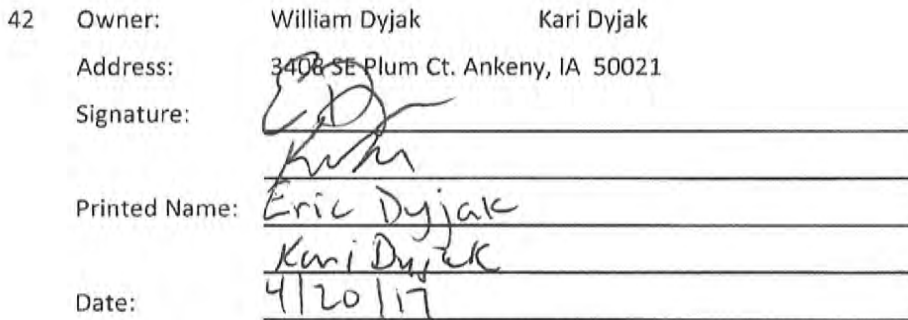 42 Owner: William Dyjak Kari Dyjak
Address: 3408 SE Plum Ct. Ankeny, IA 50021
Signature:
Printed Name: Eric Dyjak
Kari Dyjak
Date: 4/20/17